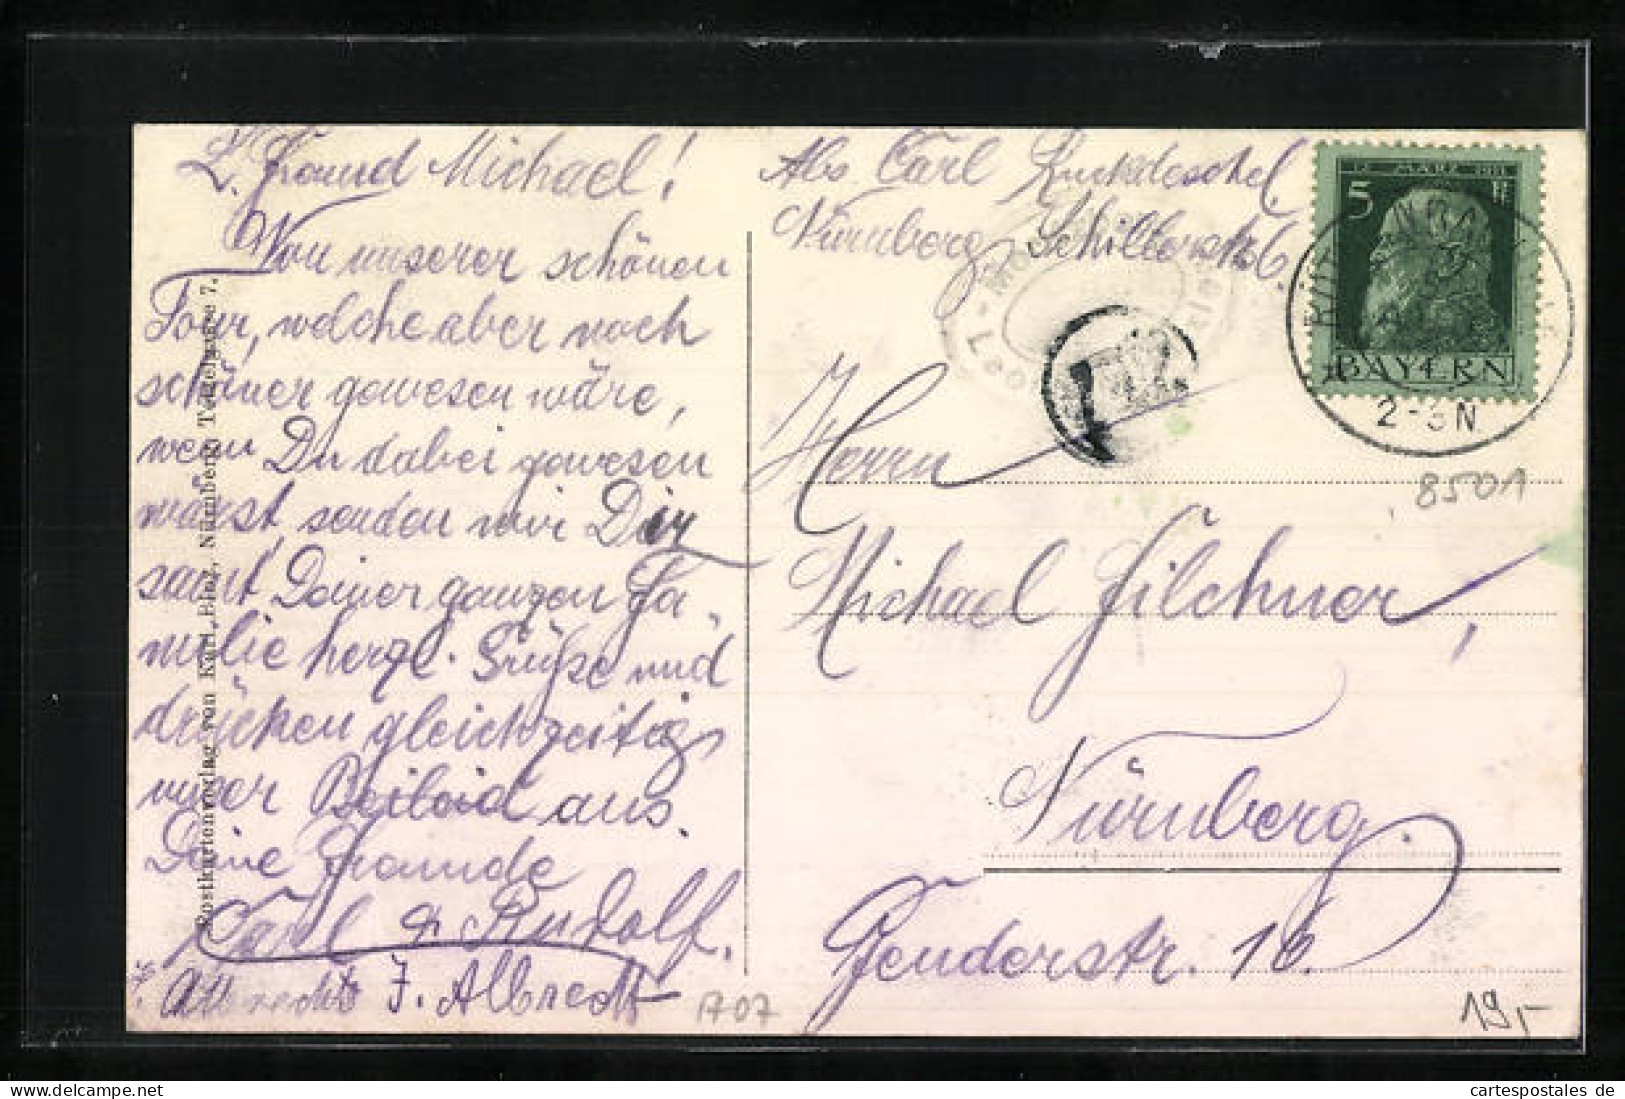 L. Freund Michael!
Von unserer schönen
Tour, welche aber noch
schöner gewesen wäre,
wenn Du dabei gewesen
wärst, senden wir Dir
samt Deiner ganzen Fa-
milie herzl. Grüße und
drücken gleichzeitig
unser Beileid aus.
Deine Freunde
Carl & Rudolf.
J. Albrecht
Postkartenverlag von Karl Nürnberg 7.
Abs. Carl
Nürnberg, Schillerstr. 6.
12. MÄRZ 1911
5
BAYERN
2-3N
8501
Herrn
Michael Filchner,
Nürnberg.
Fenderstr. 16.
1707
19,-
delcampe.net
cartespostales de